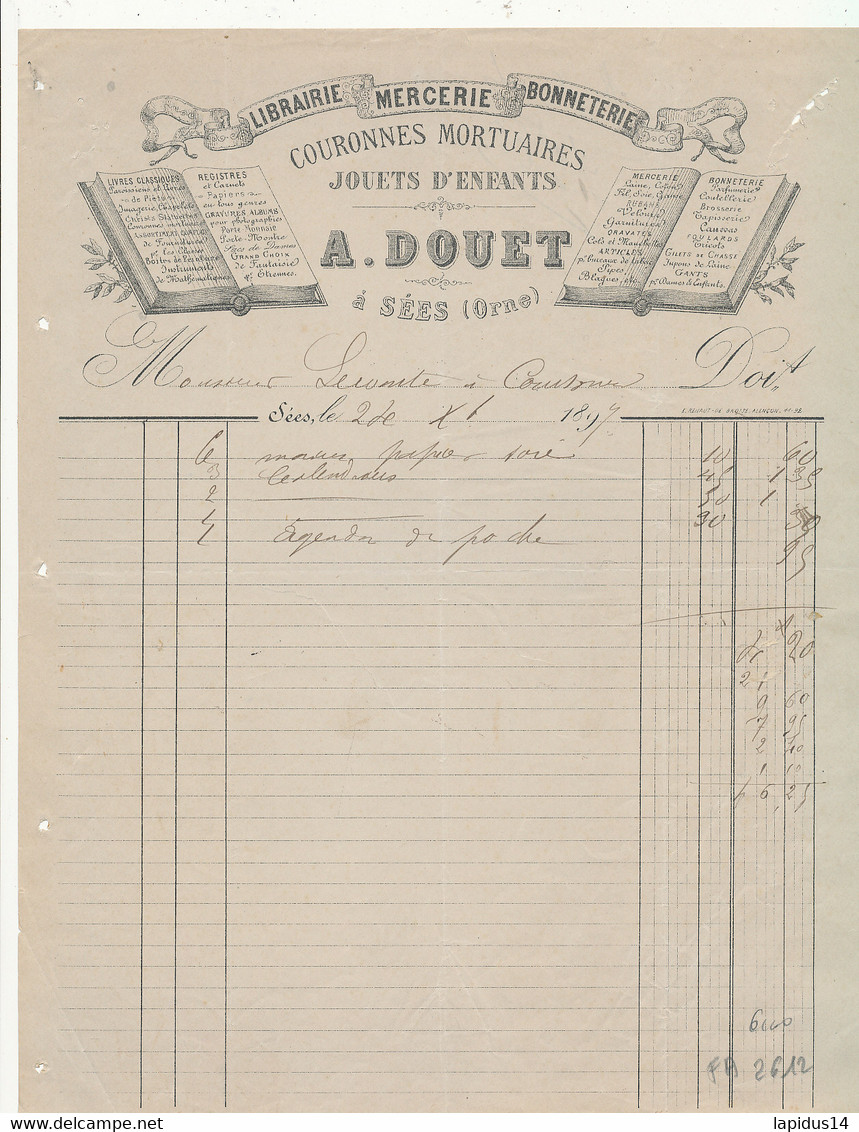 LIBRAIRIE MERCERIE BONNETERIE
COURONNES MORTUAIRES
JOUETS D'ENFANTS
A. DOUET
à SÉES (Orne)
LIVRES CLASSIQUES
Paroissiens et Livres
de Piété
Imagerie, Chapelets
Christs Statuettes
Couronnes mortuaires
ASSORTIMENT COMPLET
de Fournitures
pr les Écoles
Boîtes de Peinture
Instruments
de Mathématiques
REGISTRES
et Carnets
Papiers
en tous genres
GRAVURES, ALBUMS
pour photographies
Porte Monnaie
Porte-Montre
Sacs de Dames
GRAND CHOIX
de Fantaisie
pr Étrennes.
MERCERIE
Laine, Coton
Fil, Soie, Gaine
RUBANS
Velours
Garnitures
CRAVATES
Cols et Manchettes
ARTICLES
pr bureaux de tabac
Pipes
Blagues, etc.
BONNETERIE
Parfumerie
Coutellerie
Brosserie
Tapisserie
Canevas
FOULARDS
Tricots
GILETS DE CHASSE
Jupons de Laine
GANTS
pr Dames & Enfants.
Monsieur Lecomte à Doit
Sées, le 2 Xb 1897
6 papier soie 10 60
3 45 1 35
2 50 1
1 30 30
1 Agenda de poche 95
20
9 60
7 95
2 40
1 10
6,25
FA 2612
lapidus14